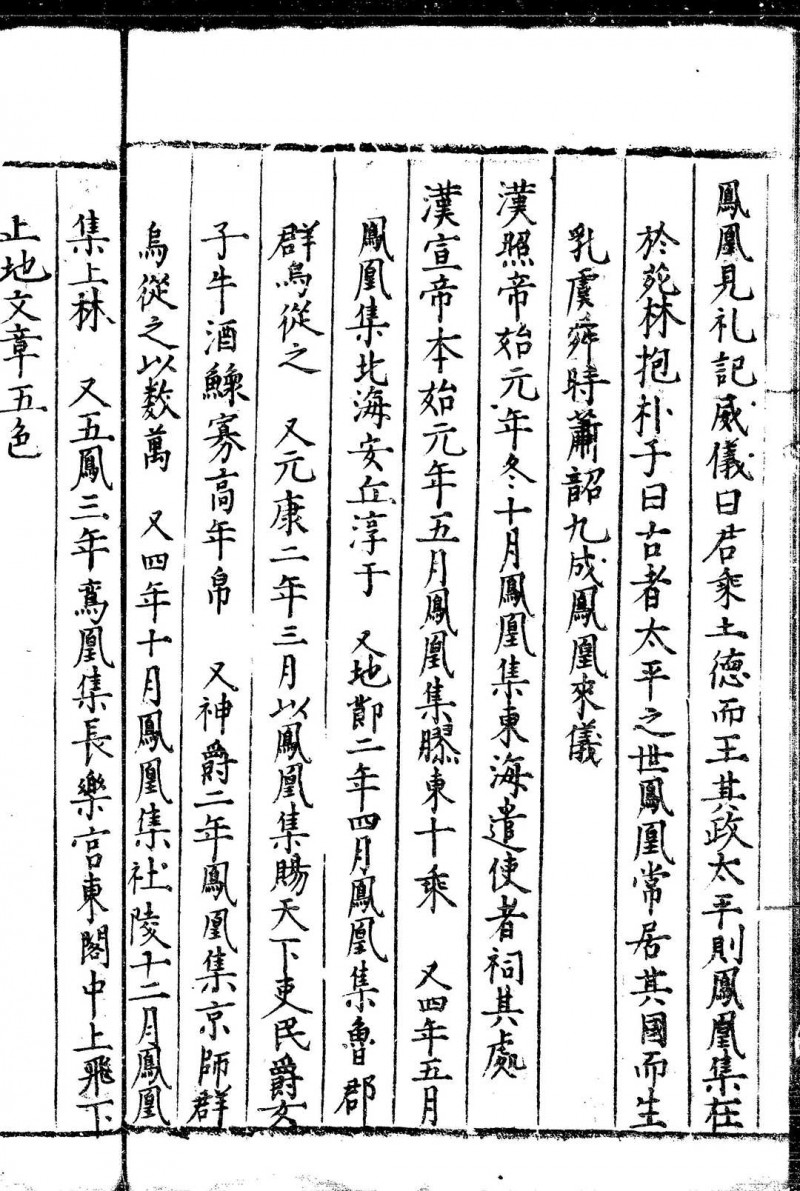 鳳凰見礼記威儀曰君乘土德而王其政太平則鳳凰集在
於苑林抱朴子曰古者太平之世鳳凰常居其國而生
乳虞舜時蕭韶九成鳳凰來儀
漢照帝始元年冬十月鳳凰集東海遣使者祠其處
漢宣帝本始元年五月鳳凰集膠東十乘 又四年五月
鳳凰集北海安丘淳于 又地節二年四月鳳凰集魯郡
群鳥從之 又元康二年三月以鳳凰集賜天下吏民爵女
子牛酒鰥寡高年帛 又神爵二年鳳凰集京師群
鳥從之以数萬 又四年十月鳳凰集社陵十二月鳳凰
集上林 又五鳳三年鸾凰集長樂宮東閣中上飛下
止地文章五色